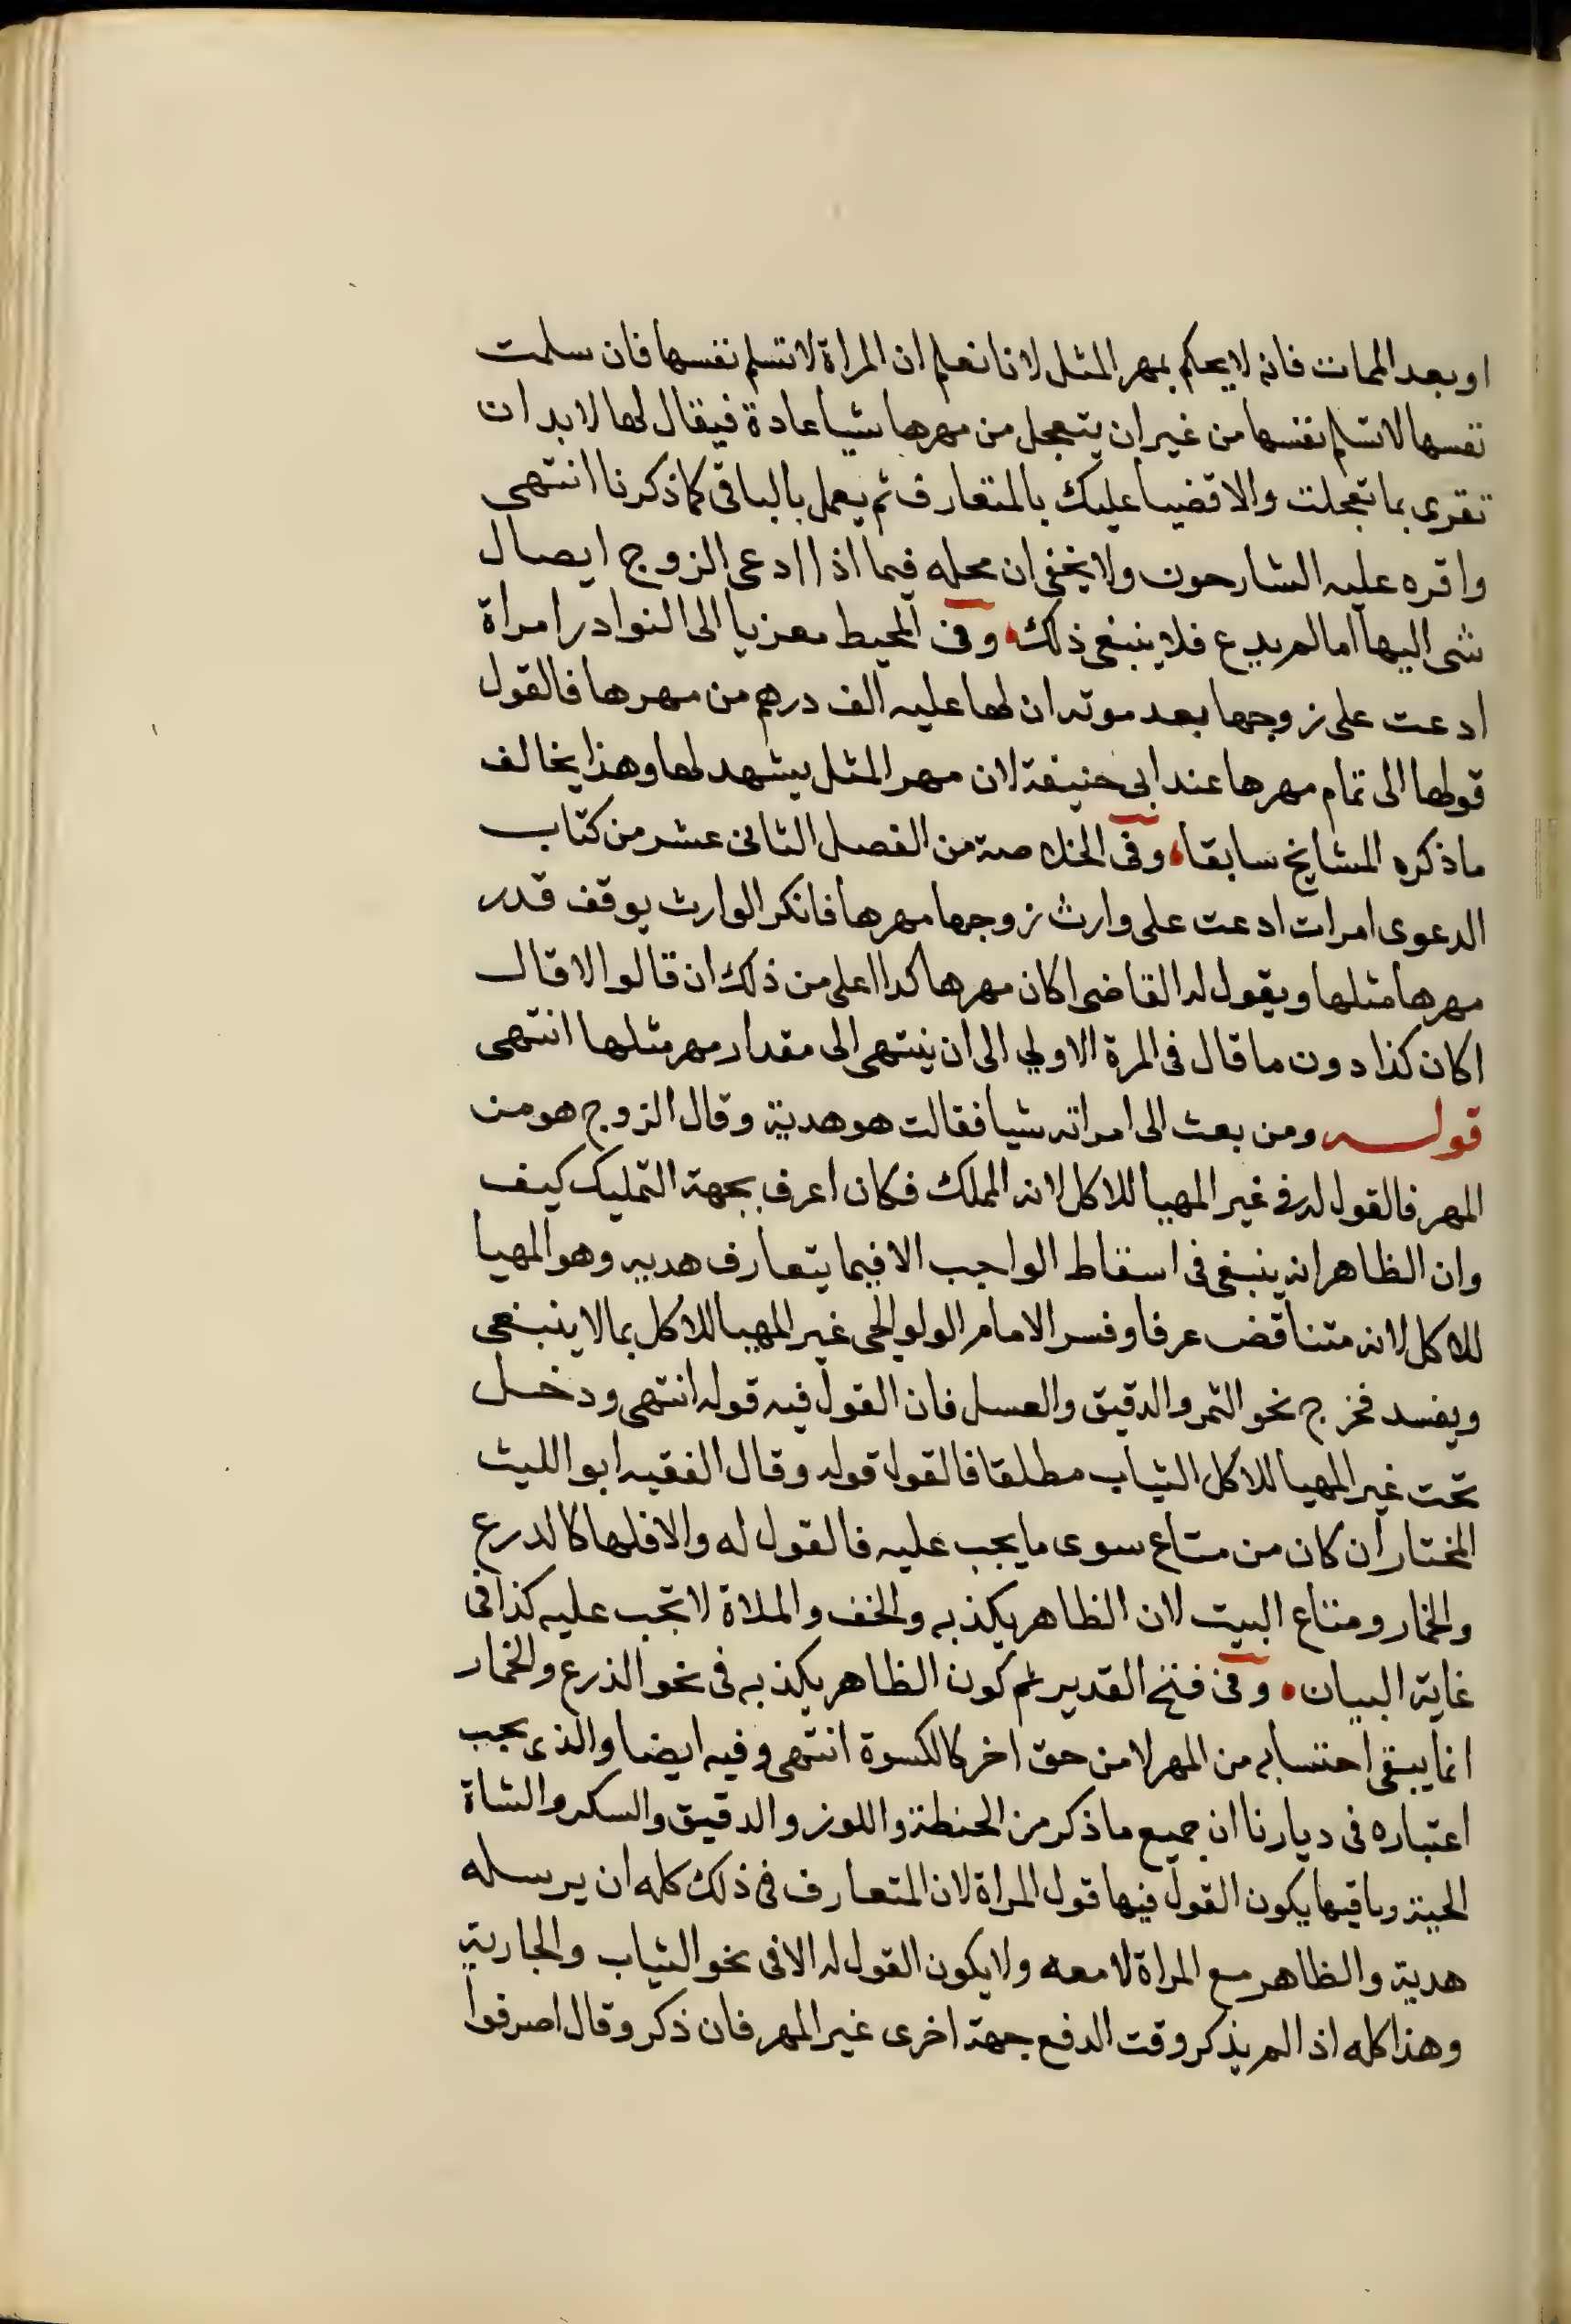 او بعد الممات فانه لا يحكم بمهر المثل لانا نعلم ان المراة لا تسلم نفسها فان سلمت
نفسها لا تسلم نفسها من غير ان يتعجل من مهرها شيا عادة فيقال لها لا بد ان
تقرى بما تعجلت والا قضينا عليك بالمتعارف ثم يعمل بالباقى كما ذكرنا انتهى
واقره عليه الشارحون ولا يخفى ان محله فيما اذا ادعى الزوج ايصال
شى اليها اما لم يدع فلا ينبغى ذلك وفى المحيط معزيا الى النوادر امراة
ادعت على زوجها بعد موته ان لها عليه الف درهم من مهرها فالقول
قولها الى تمام مهرها عند ابى حنيفة لان مهر المثل يشهد لها وهذا يخالف
ماذكره المشايخ سابقا وفى الخلاصة من الفصل الثانى عشر من كتاب
الدعوى امرات ادعت على وارث زوجها مهرها فانكر الوارث يوقف قدر
مهرها مثلها ويقول له القاضى اكان مهرها كدا اعلى من ذلك ان قالوا لا قال
اكان كذا دون ما قال فى المرة الاولي الى ان ينتهى الى مقدار مهر مثلها انتهى
قوله ومن بعث الى امراته شيا فقالت هو هدية وقال الزوج هو من
المهر فالقول له فى غير المهيا للاكل لانه المملك فكان اعرف بجهة التمليك كيف
وان الظاهر انه ينبغى فى اسقاط الواجب الا فيما يتعارف هديه وهو المهيا
للاكل لانه متناقض عرفا وفسر الامام الولوالجى غير المهيا للاكل بما لا ينبغى
ويفسد فخرج نحو التمر والدقيق والعسل فان القول فيه قوله انتهى ودخل
تحت غير المهيا للاكل الثياب مطلقا فالقول قوله وقال الفقيه ابو الليث
المختار ان كان من متاع سوى ما يجب عليه فالقول له والا فلها كالدرع
والخمار ومتاع البيت لان الظاهر يكذبه والخف والملاة لا تجب عليه كذا فى
غاية البيان وفى فتح القدير ثم كون الظاهر يكذبه فى نحو الذرع والخمار
انما يبقى احتسابه من المهر لا من حق اخر كالكسوة انتهى وفيه ايضا والذى يجب
اعتباره فى ديارنا ان جميع ما ذكر من الحنطة واللوز والدقيق والسكر والشاة
الحية وباقيها يكون القول فيها قول المراة لان المتعارف فى ذلك كله ان يرسله
هدية والظاهر مع المراة لا معه ولا يكون القول له الا فى نحو الثياب والجارية
وهذا كله اذا لم يذكر وقت الدفع جهة اخرى غير المهر فان ذكر وقال اصرفوا